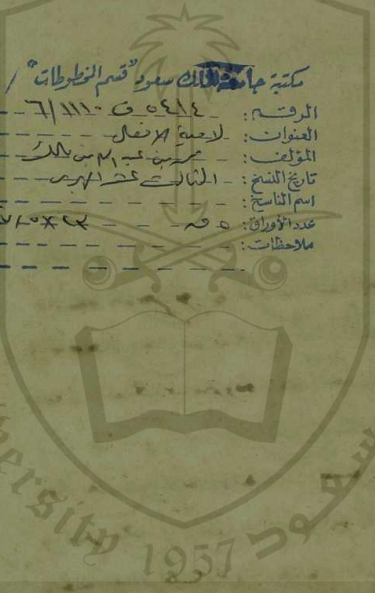 مكتبة جامعة الملك سعود "قسم المخطوطات"
الرقم: ٥٤١٤ ف ١١١٠/٦
العنوان: لامية الافعال
المؤلف: محمد بن عبد الله بن مالك
تاريخ النسخ: الثالث عشر الهجري
اسم الناسخ:
عدد الأوراق: ٥ ق
ملاحظات:
ersity 1957 سعود